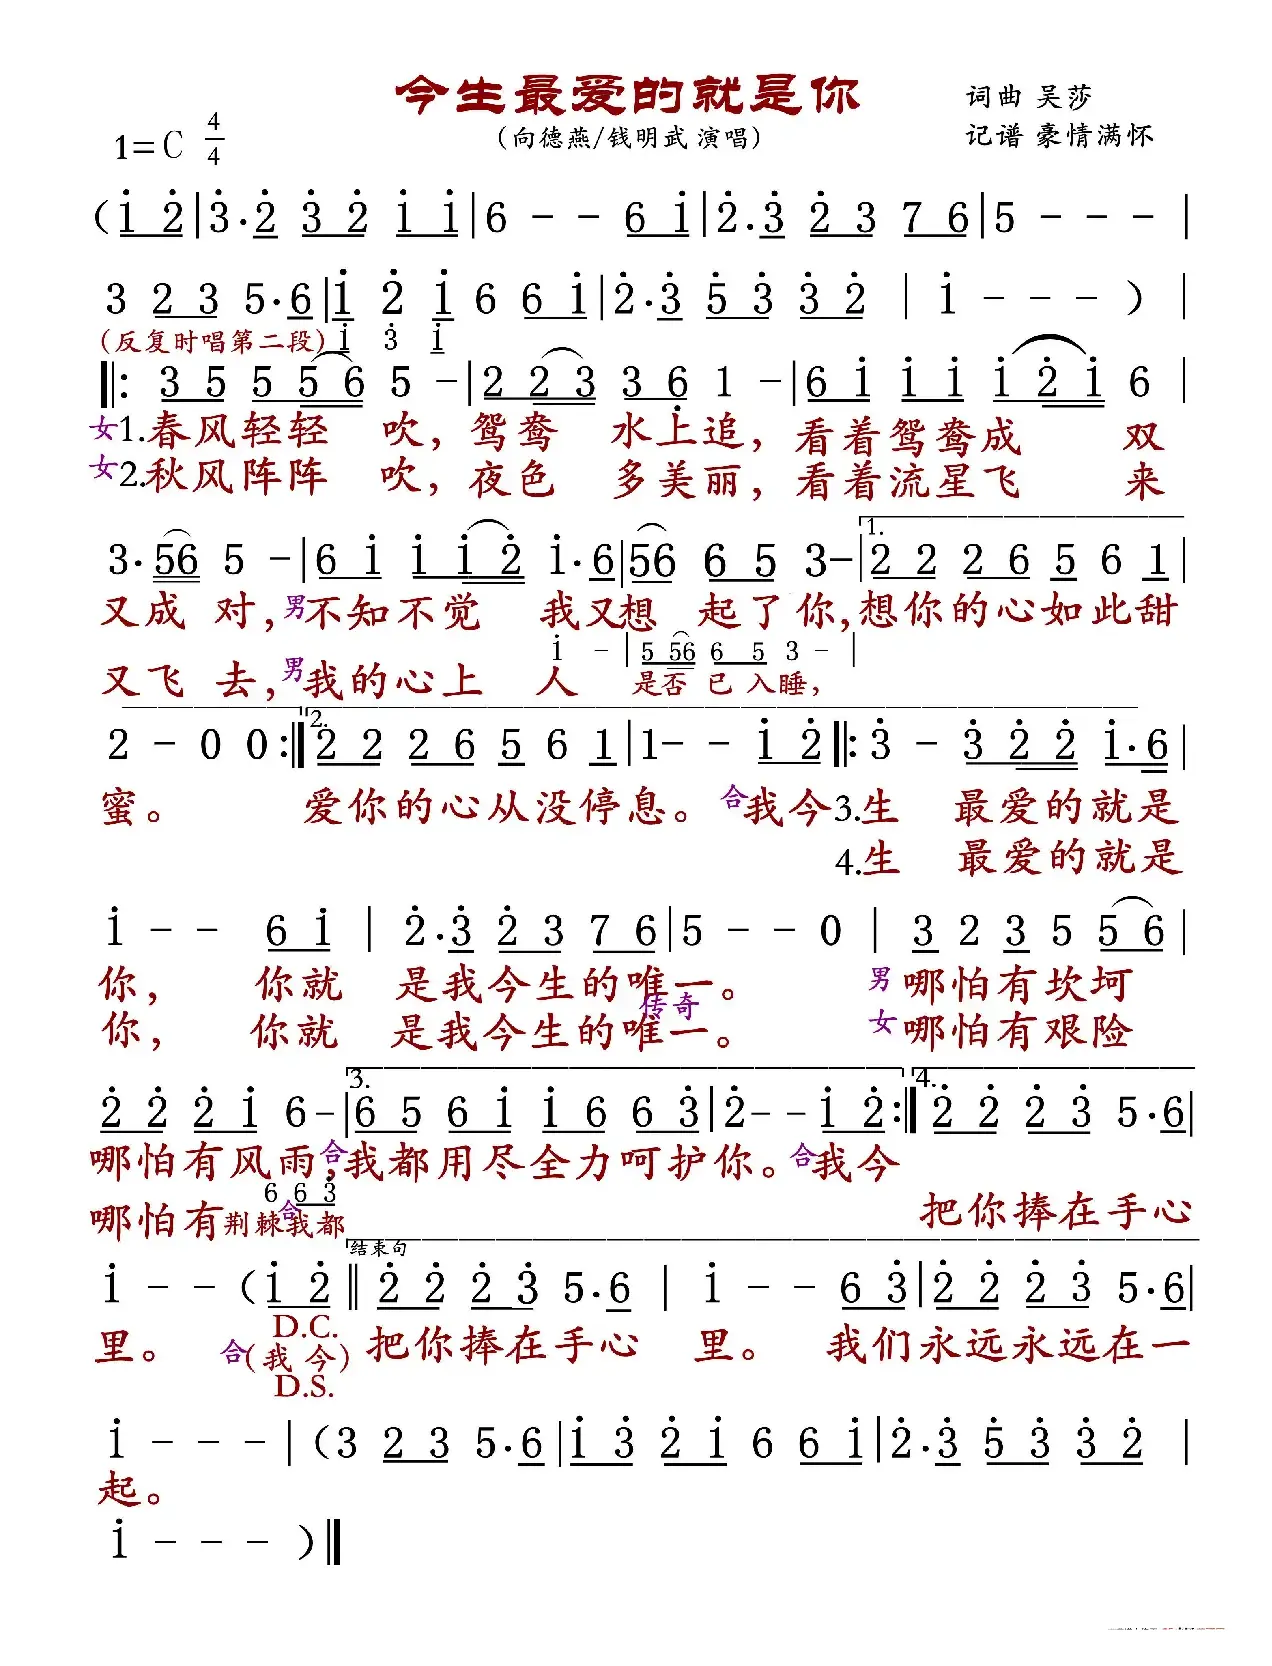 今生最爱的就是你
词曲 吴莎
(向德燕/钱明武 演唱)
记谱 豪情满怀
1=C 4/4
(1̇ 2̇|3̇·2̇ 3̇ 2̇ 1̇ 1̇|6 - - 6 1̇|2̇·3̇ 2̇ 3 7 6|5 - - -|
3 2 3 5·6|1̇ 2̇ 1̇ 6 6 1̇|2̇·3̇ 5̇ 3̇ 3̇ 2̇|1̇ - - -)|
(反复时唱第二段) 1̇ 3̇ 1̇
‖: 3 5 5 5 6 5 -|2 2 3 3 6̣ 1 -|6 1̇ 1̇ 1̇ 1̇ 2̇ 1̇ 6|
女1.春风轻轻 吹，鸳鸯 水上追，看着鸳鸯成 双
女2.秋风阵阵 吹，夜色 多美丽，看着流星飞 来
3·56 5 -|6 1̇ 1̇ 1̇ 2̇ 1̇·6|56 6 5 3-|1. 2 2 2 6 5 6 1|
又成 对，男不知不觉 我又想 起了你，想你的心如此甜
1̇ -|5 56 6 5 3 -|
又飞 去，男我的心上 人 是否 已 入睡，
2 - 0 0:‖2. 2 2 2 6 5 6 1|1- - 1̇ 2̇‖: 3̇ - 3̇ 2̇ 2̇ 1̇·6|
蜜。 爱你的心从没停息。合我今3.生 最爱的就是
4.生 最爱的就是
1̇ - - 6 1̇|2̇·3̇ 2̇ 3 7 6|5 - - 0|3 2 3 5 5 6|
你， 你就 是我今生的唯一。 男 哪怕有坎坷
传奇
你， 你就 是我今生的唯一。 女 哪怕有艰险
2̇ 2̇ 2̇ 1̇ 6-|3. 6 5 6 1̇ 1̇ 6 6 3̇|2̇- - 1̇ 2̇:‖4. 2̇ 2̇ 2̇ 3̇ 5·6|
哪怕有风雨，合我都用尽全力呵护你。合我今
6 6 3̇
哪怕有荆棘合我都 把你捧在手心
结束句
1̇ - - (1̇ 2̇‖2̇ 2̇ 2̇ 3̇ 5·6|1̇ - - 6 3̇|2̇ 2̇ 2̇ 3̇ 5·6|
D.C.
里。 合(我 今) 把你捧在手心 里。 我们永远永远在一
D.S.
1̇ - - -|(3 2 3 5·6|1̇ 3̇ 2̇ 1̇ 6 6 1̇|2̇·3̇ 5̇ 3̇ 3̇ 2̇|
起。
1̇ - - -)‖